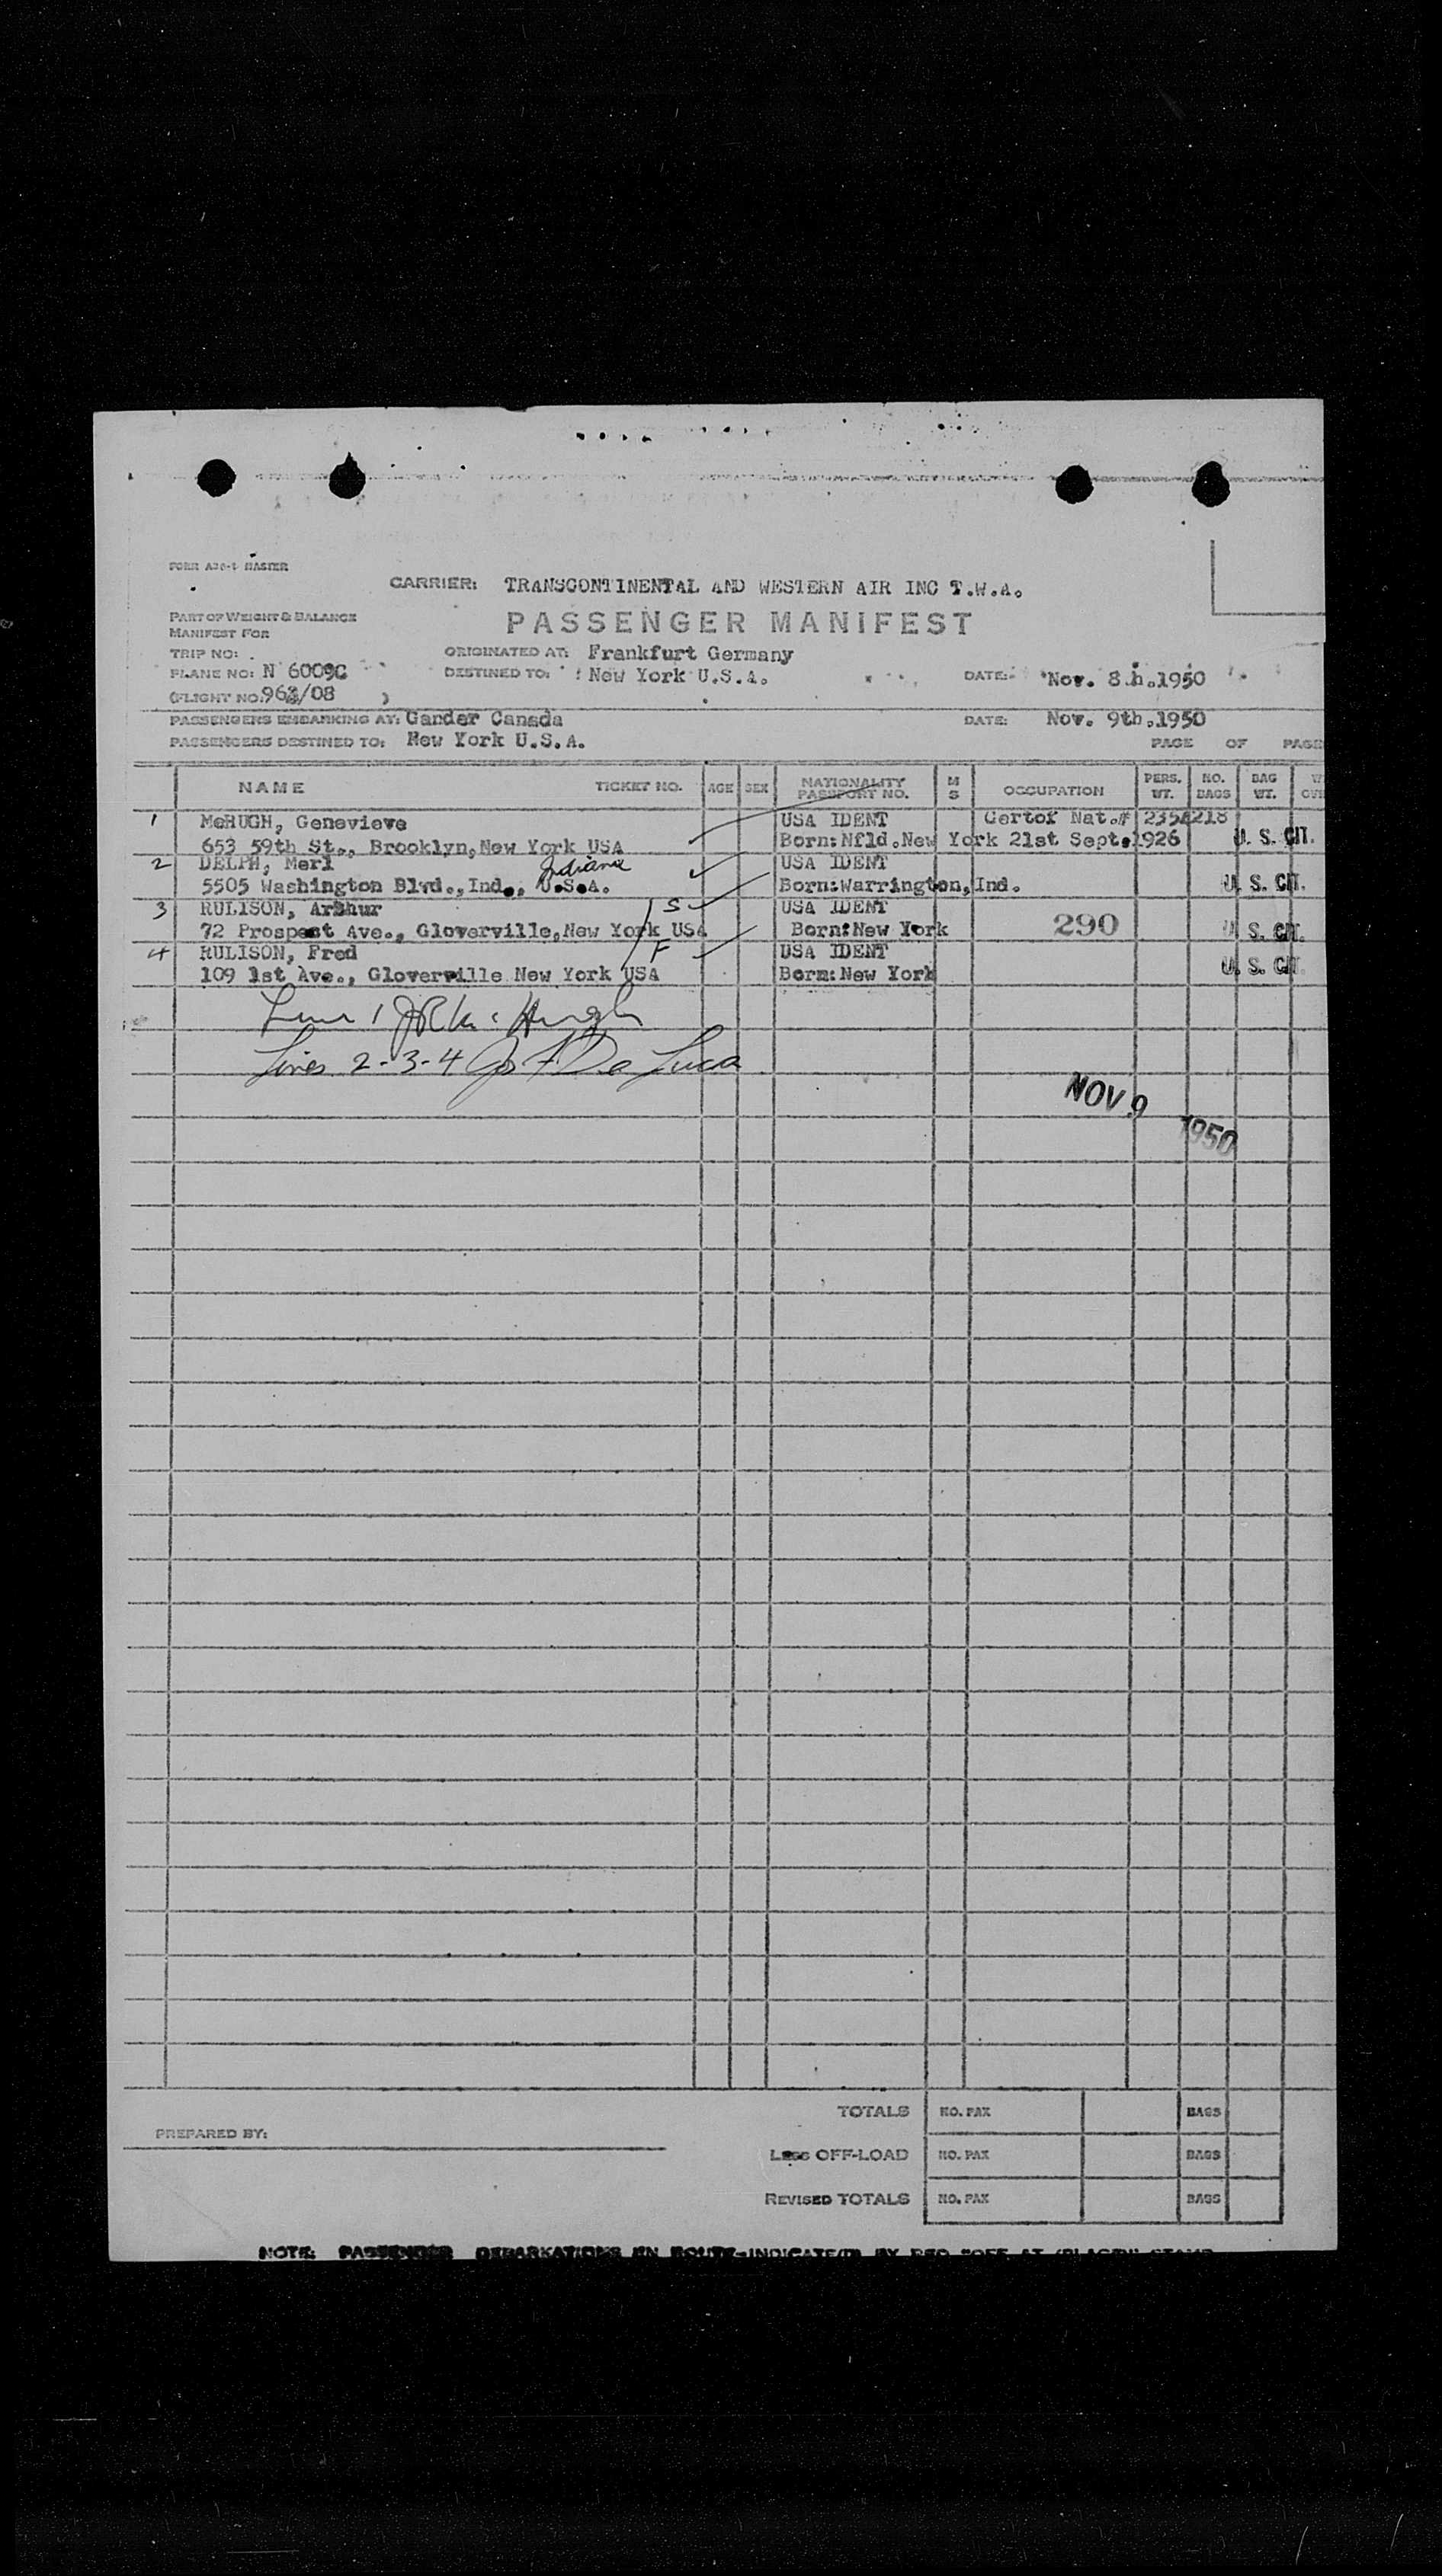 FORM A20-1 MASTER
CARRIER: TRANSCONTINENTAL AND WESTERN AIR INC T.W.A.
PART OF WEIGHT & BALANCE
MANIFEST FOR
PASSENGER MANIFEST
TRIP NO:
ORIGINATED AT: Frankfurt Germany
PLANE NO: N 6009C
DESTINED TO: New York U.S.A.
DATE: Nov. 8 h.1950
(FLIGHT NO. /08 )
PASSENGERS EMBARKING AT: Gander Canada
DATE: Nov. 9th.1950
PASSENGERS DESTINED TO: New York U.S.A.
PAGE OF PAGE
NAME TICKET NO. AGE SEX NATIONALITY PASSPORT NO. M S OCCUPATION PERS. WT. NO. BAGS BAG WT.
1 McHUGH, Genevieve USA IDENT Certof Nat.#
653 59th St., Brooklyn,New York USA Born:Nfld.New York 21st Sept.1926 U. S. CIT.
2 DELPH, Merl Indiana USA IDENT
5505 Washington Blvd.,Ind., U.S.A. Born:Warrington,Ind. U. S. CIT.
3 RULISON, Arthur S USA IDENT
72 Prospect Ave., Gloverville,New York USA Born:New York 290 U. S. CIT.
4 RULISON, Fred F USA IDENT
109 1st Ave., Gloverville New York USA Born:New York U. S. CIT.
Line 1 Hugh
Lines 2-3-4 Jos F De Luca
NOV 9 1950
TOTALS NO. PAX BAGS
PREPARED BY:
Less OFF-LOAD NO. PAX BAGS
REVISED TOTALS NO. PAX BAGS
NOTE: PASSENGER DEBARKATIONS EN ROUTE-INDICATE BY RED "OFF AT